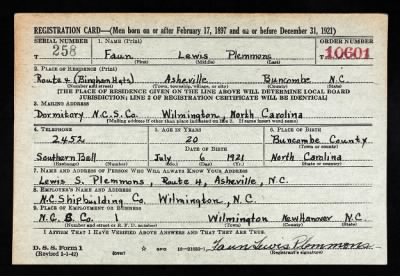 REGISTRATION CARD—(Men born on or after February 17, 1897 and on or before December 31, 1921)
SERIAL NUMBER 1. NAME (Print) ORDER NUMBER
T 258 Faun Lewis Plemmons T 10601
(First) (Middle) (Last)
2. PLACE OF RESIDENCE (Print)
Route 4 (Bingham Hgts) Asheville Buncombe N.C.
(Number and street) (Town, township, village, or city) (County) (State)
[THE PLACE OF RESIDENCE GIVEN ON THE LINE ABOVE WILL DETERMINE LOCAL BOARD
JURISDICTION; LINE 2 OF REGISTRATION CERTIFICATE WILL BE IDENTICAL]
3. MAILING ADDRESS
Dormitory N.C.S.Co. Wilmington, North Carolina
[Mailing address if other than place indicated on line 2. If same insert word same]
4. TELEPHONE 5. AGE IN YEARS 6. PLACE OF BIRTH
2452 20 Buncombe County
DATE OF BIRTH (Town or county)
Southern Bell July 6 1921 North Carolina
(Exchange) (Number) (Mo.) (Day) (Yr.) (State or country)
7. NAME AND ADDRESS OF PERSON WHO WILL ALWAYS KNOW YOUR ADDRESS
Lewis S. Plemmons, Route 4, Asheville, N.C.
8. EMPLOYER'S NAME AND ADDRESS
N.C. Shipbuilding Co. Wilmington, N.C.
9. PLACE OF EMPLOYMENT OR BUSINESS
N.C.S. Co. 1 Wilmington New Hanover N.C.
(Number and street or R. F. D. number) (Town) (County) (State)
I AFFIRM THAT I HAVE VERIFIED ABOVE ANSWERS AND THAT THEY ARE TRUE.
D. S. S. Form 1
(Revised 1-1-42) (over) GPO 16—21630-1 Faun Lewis Plemmons
(Registrant's signature)